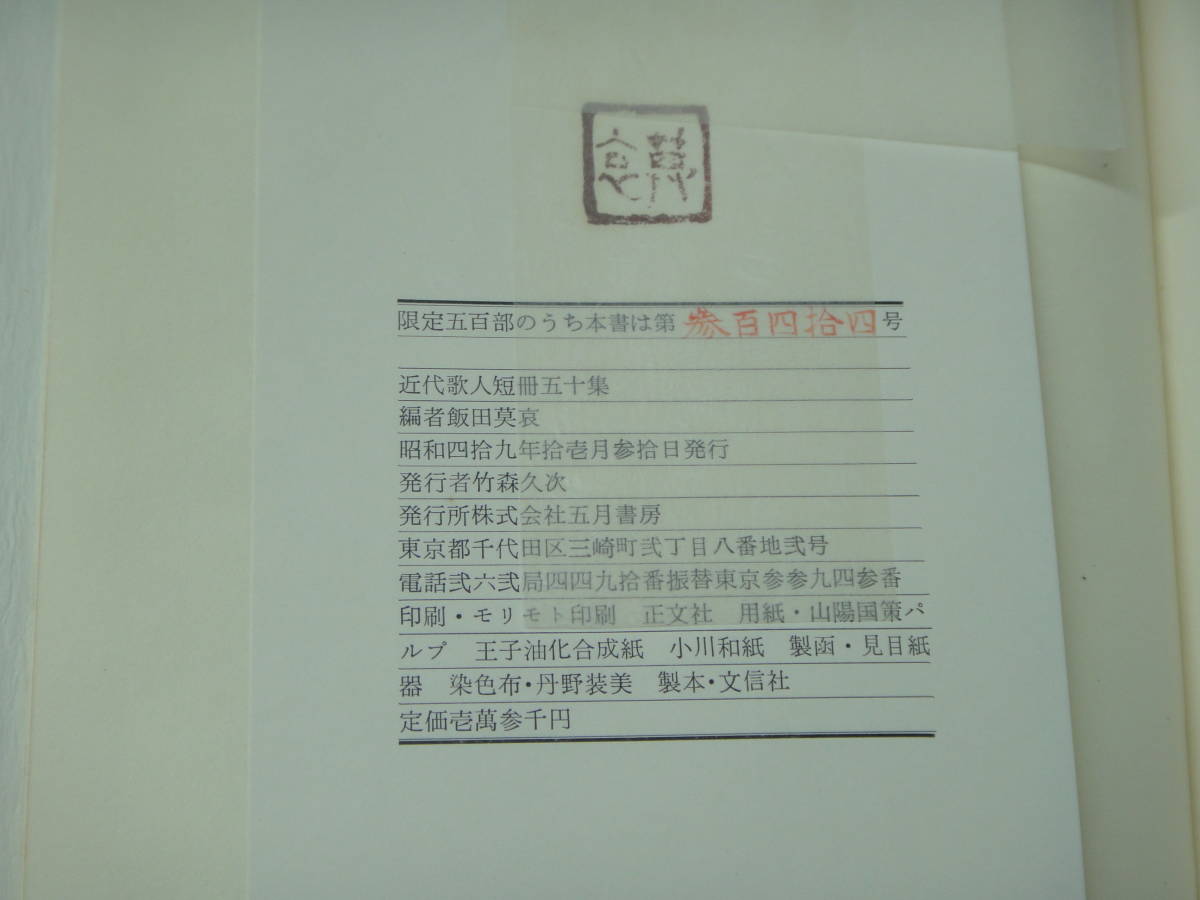 限定五百部のうち本書は第 参百四拾四号
近代歌人短冊五十集
編者飯田莫哀
昭和四拾九年拾壱月参拾日発行
発行者竹森久次
発行所株式会社五月書房
東京都千代田区三崎町弐丁目八番地弐号
電話弐六弐局四四九拾番振替東京参参九四参番
印刷・モリモト印刷　正文社　用紙・山陽国策パ
ルプ　王子油化合成紙　小川和紙　製函・見目紙
器　染色布・丹野装美　製本・文信社
定価壱萬参千円